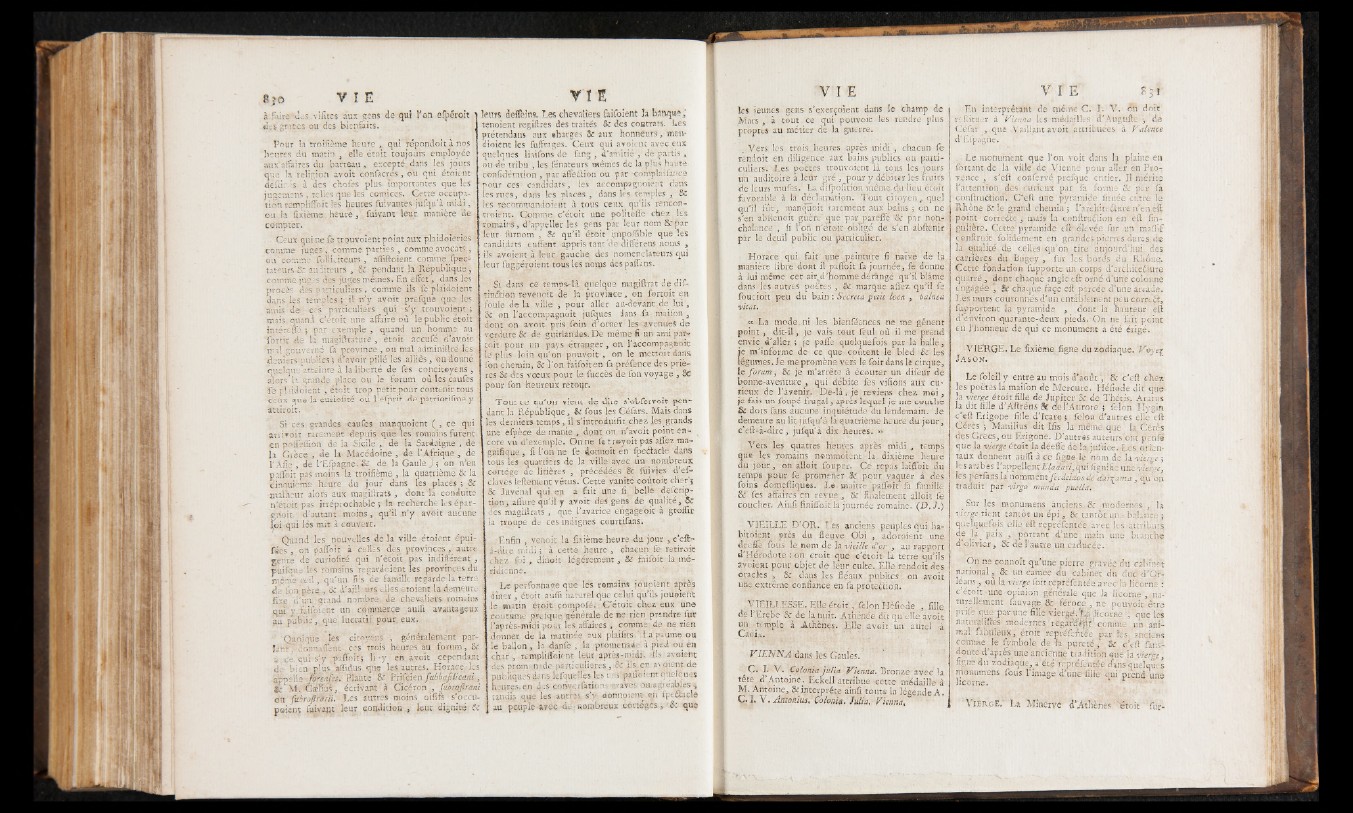 830 VIE
à faire des visites aux gens de qui l'on espéroit
des graces ou des bienfaits.
Pour la troisième heure , qui répondoit à nos
heures du matin , elle étoit toujours employée
aux affaires du barreau , excepté dans les jours
que la religion avoit consacrés , ou qui étoient
à des choses plus importantes que les
jugemens , telles que les comices. Cette occupa-
tion remplissoit les heures suivantes jusqu'à midi ,
ou la sixième heure , suivant leur manière de
compter.
Ceux qui ne se trouvoient point aux plaidoieries
comme juges , comme parties , comme avocats ,
ou comme solliciteurs , assistoient comme spec-
tateurs & auditeurs , & pendant la République ,
comme juges des juges mêmes. En effet , dans les
procès des particuliers , comme ils se plaidoient
dans les temples ; il n'y avoit presque que les
amis de ces particuliers qui s'y trouvoient ;
mais quand c'étoit une affaire où le public étoit
intéressé ; par exemple , quand un homme au
sortir de la magistrature , étoit accusé d'avoir
mal gouverné sa province , ou mal administré les
deniers publics ; d'avoir pillé les alliés , ou donné
quelque atteinte à la liberté de ses concitoyens ,
alors la grande place ou le forum où les causes
se plaidoient , étoit trop petit pour contenir tous
ceux que la curiosité ou l'esprit de patriotisme y
attiroit.
Si ces grandes causes manquoient ( , ce qui
arrivoit rarement depuis que les romains furent
en possession de la Sicile , de la Sardaigne , de
la Grèce , de la Macédoine , de l'Afrique , de
l'Asie , de l'Espagne & de la Gaule ) ; on n'en
passoit pas moins la troisième , la quatrième & la
cinquième heure du jour dans les places ; &
malheur alors aux magistrats , dont la conduite
n'étoit pas irréprochable ; la recherche les épar-
gnoit d'autant moins , qu'il n'y avoit aucune
loi qui les mît à couvert.
Quand les nouvelles de la ville étoient épui-
sées , on passoit à celles des provinces , autre
genre de curiosité qui n'étoit pas indifférent ,
puisque les romains regardoient les provinces du
même œil , qu'un fils de famille regarde la terre
de son père , & d'ailleurs elles étoient la demeure
fixe d'un grand nombre de chevaliers romains
qui y faisoient un commerce aussi avantageux
au public , que lucratif pour eux.
Quoique les citoyens , généralement par-
lant , ces trois heures au forum , &
à ce qui s'y passoit ; il y en avoit cependant
de bien plus assidus que les autres. Horace les
appelle forenses, Plaute & Priscien subbasilicani ,
& M. Cœlius , écrivant à Cicéron , subrostrani
ou subrostrarii. Les autres moins oisifs s'occu-
poient suivant leur condition , leur dignité &
VIE
leurs desseins. Les chevaliers faisoient la banque ,
tenoient registres des traités & des contrats. Les
prétendans aux charges & aux honneurs , men-
dioient les suffrages. Ceux qui avoient avec eux
quelques liaisons de sang , d'amitié , de partis ,
ou de tribu , les sénateurs mêmes de la plus haute
considération , par affection ou par complaisance
pour ces candidats , les accompagnoient dans
les rues , dans les places , dans les temples , &
les recommandoient à tous ceux qu'ils rencon-
troient. Comme c'étoit une politesse chez les
romains , d'appeller les gens par leur nom & par
leur surnom , & qu'il étoit impossible que les
candidats eussent appris tant de différens noms ,
ils avoient à leur gauche des nomenclateurs qui
leur suggéroient tous les noms des passans.
Si dans ce temps-là quelque magistrat de dis-
tinction revenoit de la province , on sortoit en
foule de la ville , pour aller au-devant de lui ,
& on l'accompagnoit jusques dans sa maison ,
dont on avoit pris soin d'orner les avenues de
verdure & de guirlandes. De même si un ami par-
toit pour un pays étranger , on l'accompagnoit
le plus loin qu'on pouvoit , on le mettoit dans
son chemin, & l'on faisoit en sa présence des priè-
res & des vœux pour le succès de son voyage , &
pour son heureux retour.
Tout ce qu'on vient de dire s'observoit pen-
dant la République , & sous les Césars. Mais dans
les derniers temps , il s'introduisit chez les grands
une espèce de manie , dont on n'avoit point en-
core vu d'exemple. On ne se trouvoit pas assez ma-
gnifique , si l'on ne se donnoit en spectacle dans
tous les quartiers de la ville avec un nombreux
cortège de litières , précédées & suivies d'es-
claves lestement vêtus. Cette vanité coûtoit cher ;
& Juvenal qui en a fait une si belle descrip-
tion , assure qu'il y avoit des gens de qualité , &
des magistrats , que l'avarice engageoit à grossir
la troupe de ces indignes courtisans.
Enfin , venoit la sixième heure du jour , c'est-
à-dire midi ; à cette heure , chacun se retiroit
chez soi , dînoit légérement , & faisoit la mé-
ridienne.
Le personnage que les romains jouoient après
dîner , étoit aussi naturel que celui qu'ils jouoient
le matin étoit composé. C'étoit chez eux une
coutume presque générale de ne rien prendre sur
l'après-midi pour les affaires , comme de ne rien
donner de la matinée aux plaisirs. La paume ou
le ballon , la danse , la promenade à pied ou en
char , remplissoient leur après-midi. Ils avoient
des promenades particulières , & ils en avoient de
publiques dans lesquelles les uns passoient quelques
heures en des conversations graves ou agréables ,
tandis que les autres s'y donnoient en spectacle
au peuple avec de nombreux cortèges , & que
VIE
les jeunes gens s'exerçoient dans le champ de
Mars , à tout ce qui pouvoit les rendre plus
propres au métier de la guerre.
Vers les trois heures après midi , chacun se
rendoit en diligence aux bains publics ou parti-
culiers. Les poëtes trouvoient là tous les jours
un auditoire à leur gré , pour y débiter les fruits
de leurs muses. La disposition même du lieu étoit
favorable à la déclamation. Tout citoyen , quel
qu'il fût , manquoit rarement aux bains ; on ne
s'en abstenoit guère que par paresse & par non-
chalance , si l'on n'étoit obligé de s'en abstenir
par le deuil public ou particulier.
Horace qui fait une peinture si naïve de la
manière libre dont il passoit sa journée , se donne
à lui même cet air d'homme dérangé qu'il blâme
dans les autres poëtes , & marque assez qu'il se
soucioit peu du bain : Secreta petit loca , balnea
vitat.
« La mode ni les bienséances ne me gênent
point , dit-il , je vais tout seul où il me prend
envie d'aller ; je passe quelquefois par la halle ,
je m'informe de ce que coûtent le bled & les
légumes. Je me promène vers le soir dans le cirque ,
le forum , & je m'arrête à écouter un diseur de
bonne-aventure , qui débite ses visions aux cu-
rieux de l'avenir. De-là , je reviens chez moi ,
je fais un soupé frugal , après lequel je me couche
& dors sans aucune inquiétude du lendemain. Je
demeure au lit jusqu'à la quatrième heure du jour ,
c'est-à-dire , jusqu'à dix heures. »
Vers les quatre heures après midi , temps
que les romains nommoient la dixième heure
du jour , on alloit souper. Ce repas laissoit du
temps pour se promener & pour vaquer à des
soins domestiques. Le maître passoit sa famille
& ses affaires en revue , & finalement alloit se
coucher. Ainsi finissoit la journée romaine. (D. J.)
VIEILLE D'OR. Les anciens peuples qui ha-
bitoient près du fleuve Obi , adoroient une
déesse sous le nom de la vieille d'or , au rapport
d'Hérodote : on croit que c'étoit la terre qu'ils
avoient pour objet de leur culte. Elle rendoit des
oracles , & dans les fléaux publics on avoit
une extrême confiance en sa protection.
VIEILLESSE. Elle étoit , selon Hésiode , fille
de l'Erèbe & de la nuit. Athénée dit qu'elle avoit
un temple à Athènes. Elle avoit un autel à
Cadix.
VIENNA dans les Gaules.
C. I. V. Colonia julia Vienna. Bronze avec la
tête d'Antoine. Eckell attribue cette médaille à
M. Antoine, & interprète ainsi toute la légende A.
C. I. V. Antonius. Colonia. Julia. Vienna.
VIE 831
En interprétant de même C. I. V. on doit
restituer à Vienna les médailles d'Auguste , de
César , que Vaillant avoit attribuées à Valence
d'Espagne.
Le monument que l'on voit dans la plaine en
sortant de la ville de Vienne pour aller en Pro-
vence , s'est conservé presque entier. Il mérite
l'attention des curieux par sa forme & par sa
construction. C'est une pyramide située entre le
Rhône & le grand chemin ; l'architecture n'en est
point correcte , mais la construction en est sin-
gulière. Cette pyramide est élevée sur un massif
construit solidement en grandes pierres dures de
la qualité de celles qu'on tire aujourd'hui des
carrières du Bugey , sur les bords du Rhône.
Cette fondation supporte un corps d'architecture
quarré , dont chaque angle est orné d'une colonne
engagée , & chaque face est percée d'une arcade.
Les murs couronnés d'un entablement peu correct,
supportent la pyramide , dont la hauteur est
d'environ quarante-deux pieds. On ne sait point
en l'honneur de qui ce monument a été érigé.
VIERGE. Le sixième signe du zodiaque. Voyez
JASON.
Le soleil y entre au mois d'août , & c'est chez
les poëtes la maison de Mercure. Hésiode dit que
la vierge étoit fille de Jupiter & de Thétis. Aratus
la dit fille d'Astræus & de l'Aurore ; selon Hygin
c'est Erigone fille d'Icare ; selon d'autres elle est
Cérès ; Manilius dit Isis la même que la Cérès
des Grecs, ou Erigone. D'autres auteurs ont pensé
que la vierge étoit la déesse de la justice. Les orien-
taux donnent aussi à ce signe le nom de la vierge ;
les arabes l'appellent Eladari, qui signifie une vierge,
les persans la nomment , qu'on
traduit par virgo munda puella.
Sur les monumens anciens & modernes , la
vierge tient tantôt un épi , & tantôt une balance ;
quelquefois elle est représentée avec les attributs
de la paix , portant d'une main une branche
d'olivier , & de l'autre un caducée.
On ne connoît qu'une pierre gravée du cabinet
national , & un camée du cabinet du duc d'Or-
léans , où la vierge soit représentée avec la licorne :
c'étoit une opinion générale que la licorne , na-
turellement sauvage & féroce , ne pouvoit être
prise que par une fille vierge. La licorne , que les
naturalistes modernes regardent comme un ani-
mal fabuleux , étoit représentée par les anciens
comme le symbole de la pureté , & c'est sans-
doute d'après une ancienne tradition que la vierge ,
signe du zodiaque , a été représentée dans quelques
monumens sous l'image d'une fille qui prend une
licorne.
VIERGE. La Minerve d'Athènes étoit sur-